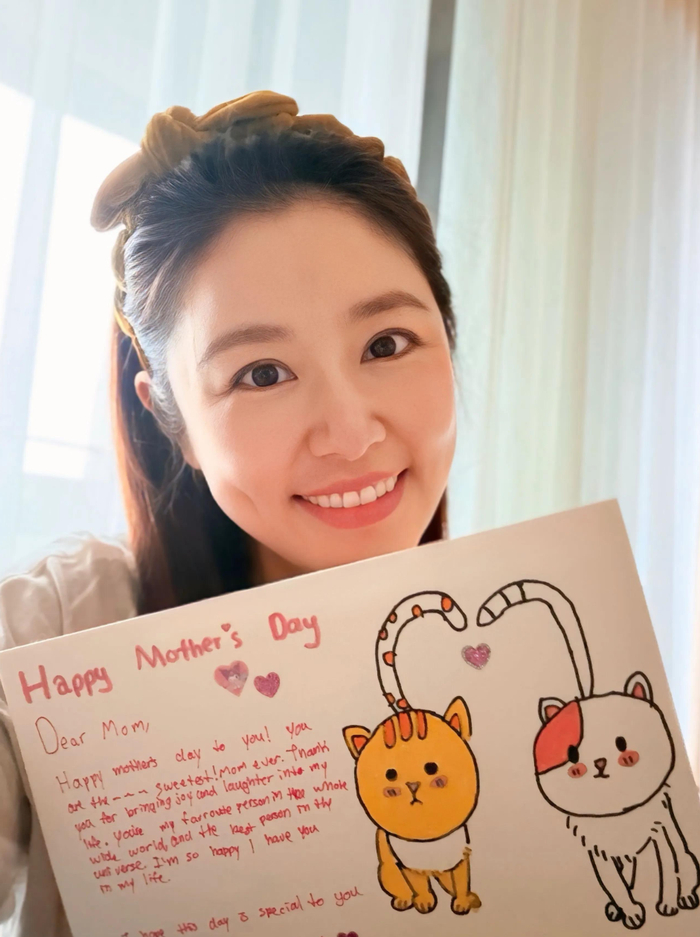 Happy Mother's Day
Dear Mom,
Happy mother's day to you! You
are the ---- sweetest! Mom ever. Thank
you for bringing joy and laughter into my
life. You're my favroute person in the whole
wide world, and the best person in the
universe. I'm so happy I have you
in my life.
hope this day is special to you